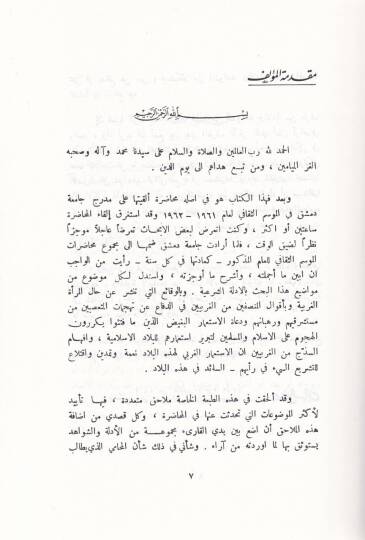 مقدمة المؤلف
بسم الله الرحمن الرحيم
الحمد لله رب العالمين والصلاة والسلام على سيدنا محمد وآله وصحبه
الغر الميامين ، ومن تبع هداهم الى يوم الدين .
وبعد فهذا الكتاب هو في اصله محاضرة ألقيتها على مدرج جامعة
دمشق في الموسم الثقافي لعام ١٩٦١ – ١٩٦٢ وقد استغرق إلقاء المحاضرة
ساعتين أو اكثر ، وكنت اتعرض لبعض الابحاث تعرضاً عاجلاً موجزاً
نظراً لضيق الوقت ، فلما أرادت جامعة دمشق ضمها الى مجموع محاضرات
الموسم الثقافي للعام المذكور – كعادتها في كل سنة – رأيت من الواجب
ان أبين ما أجملته ، وأشرح ما أوجزته ، واستدل لكل موضوع من
مواضيع هذا البحث بالادلة الشرعية . وبالوقائع التي تنشر عن حال المرأة
الغربية وبأقوال المنصفين من الغربيين في الدفاع عن تهجمات المتعصبين من
مستشرقيهم ورهبانهم ودعاة الاستعمار البغيض الذين ما فتئوا يكررون
الهجوم على الاسلام والمسلمين لتبرير استعمارهم للبلاد الاسلامية ، وافهام
السذج من الغربيين ان الاستعمار الغربي لهذه البلاد نعمة وتمدين واقتلاع
للتشريع السيء في رأيهم – السائد في هذه البلاد .
وقد ألحقت في هذه الطبعة الخاصة ملاحق متعددة ، فيها تأييد
لأكثر الموضوعات التي تحدثت عنها في المحاضرة ، وكل قصدي من اضافة
هذه الملاحق أن اضع بين يدي القارىء مجموعة من الأدلة والشواهد
يستوثق بها لما اوردته من آراء . وشأني في ذلك شأن المحامي الذي يطالب
٧